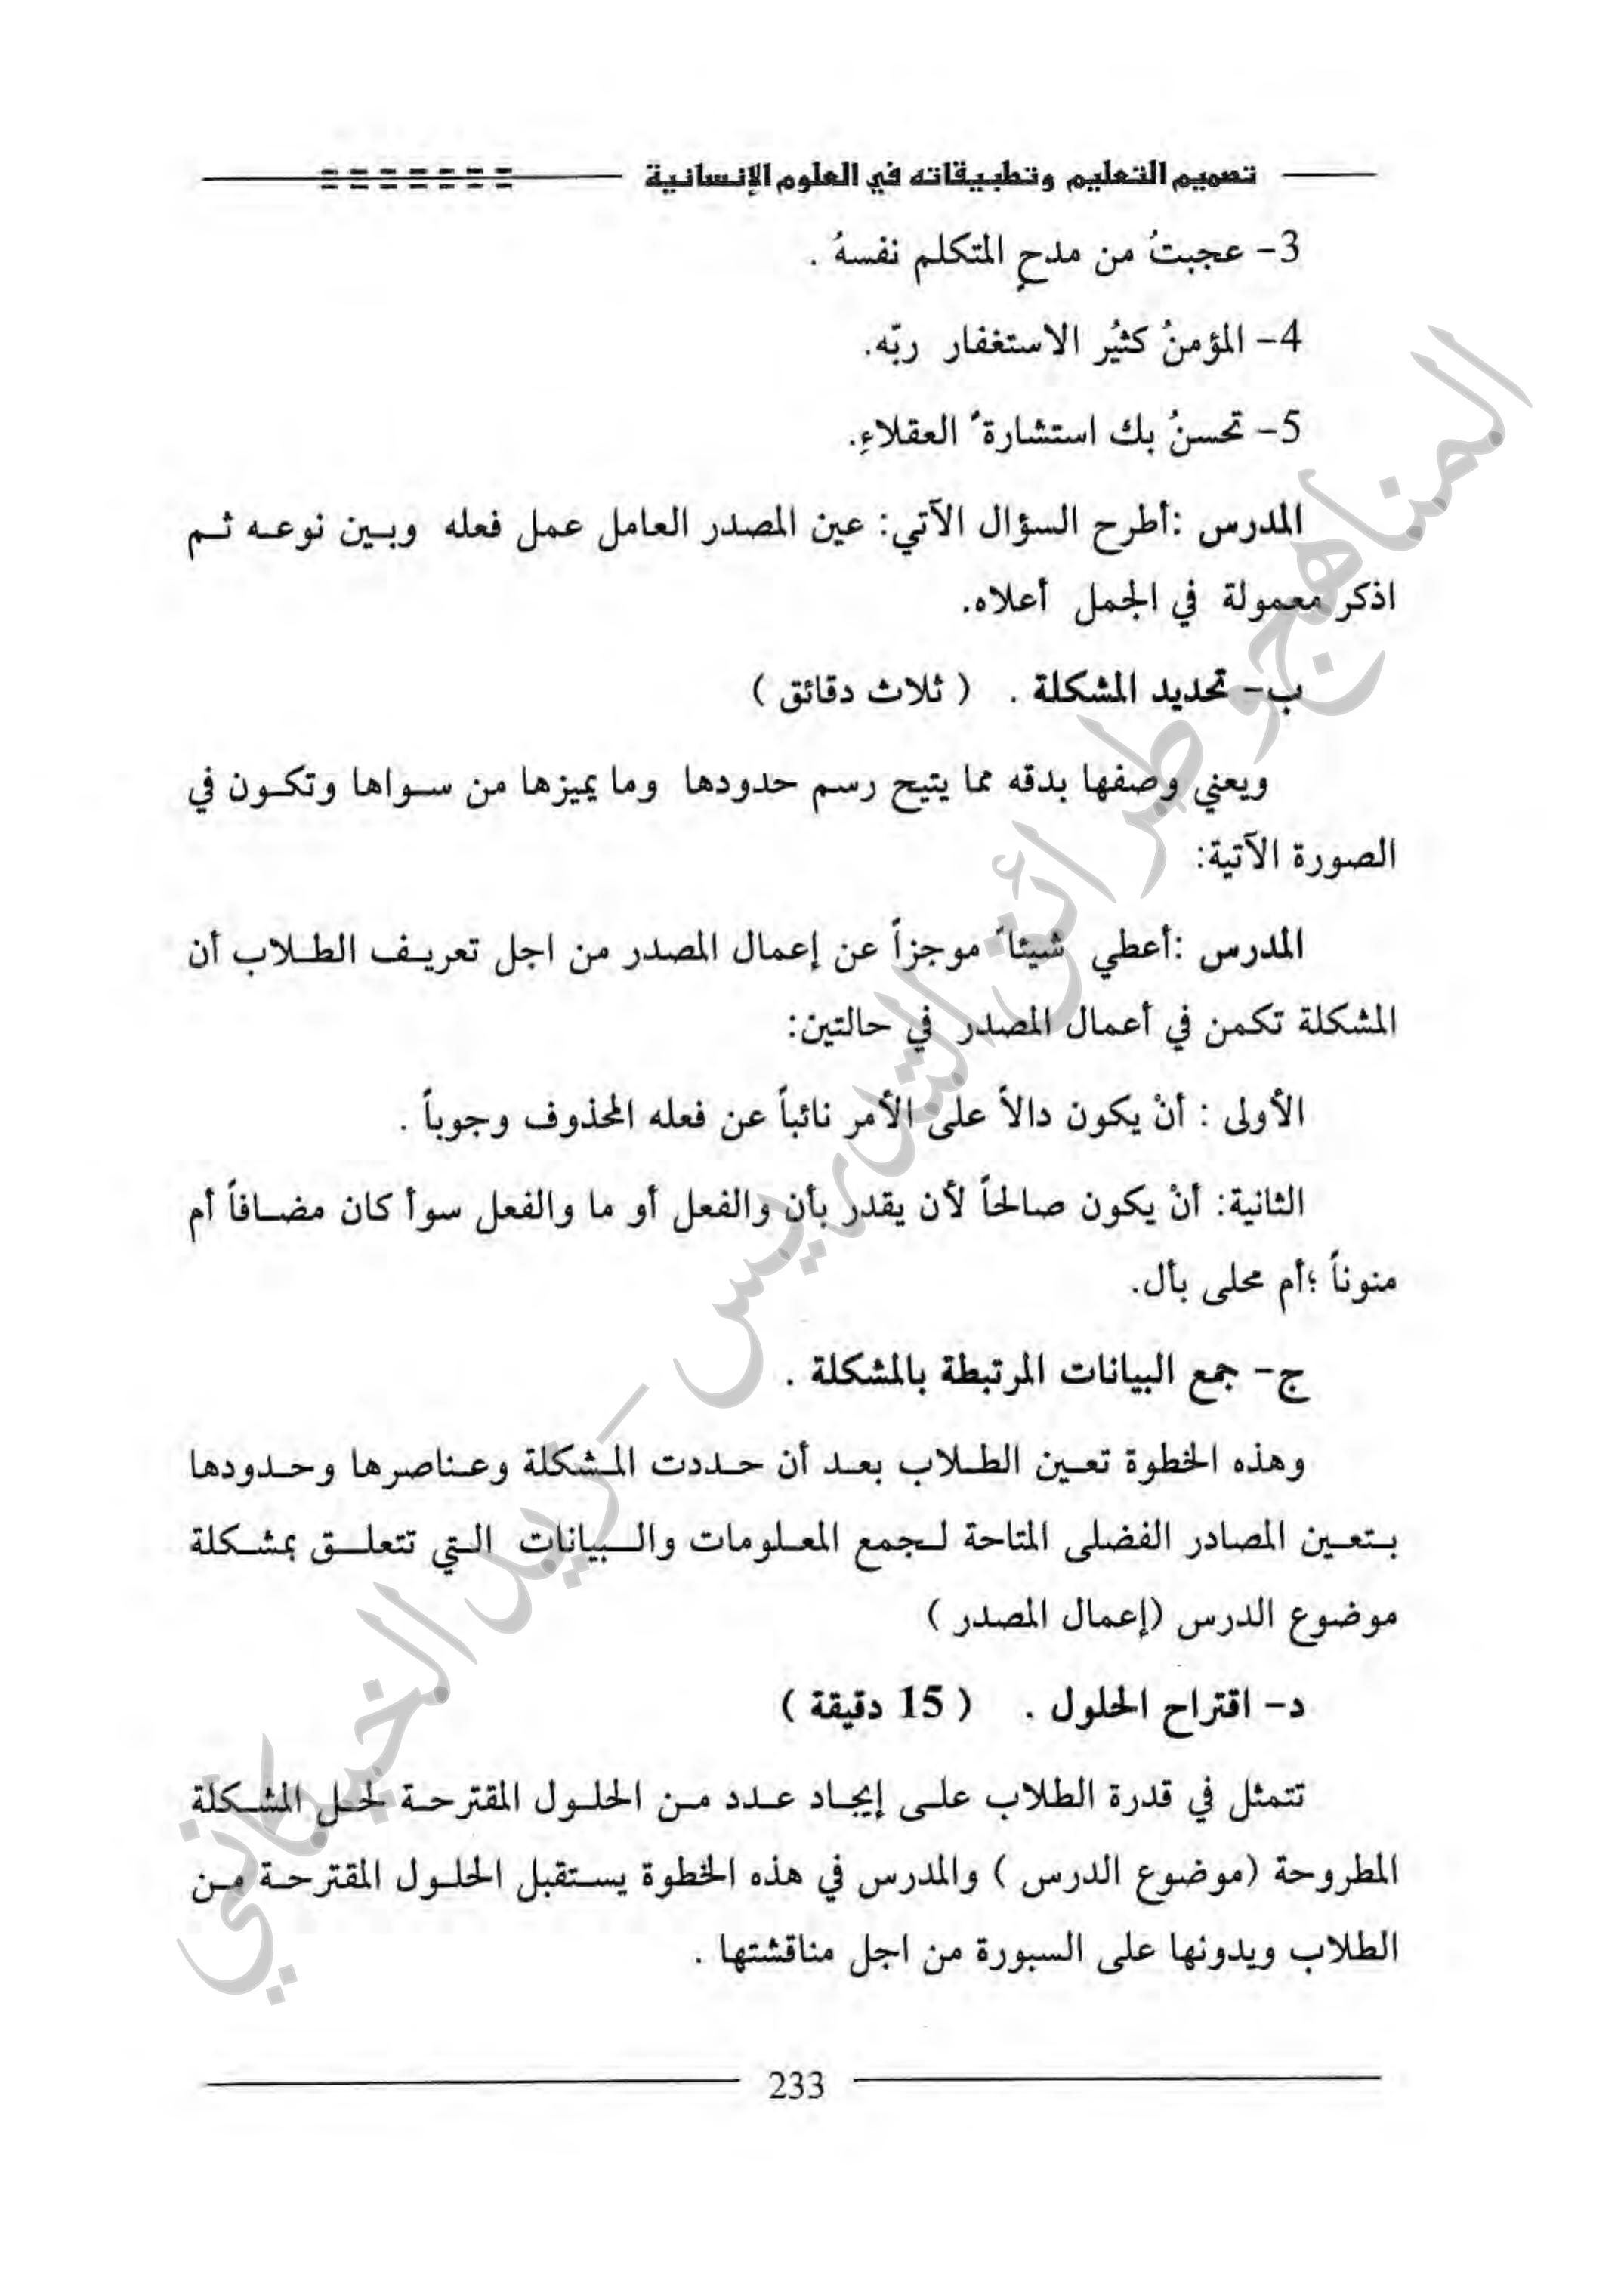 تصميم التعليم وتطبيقاته في العلوم الإنسانية
3- عجبتُ من مدحِ المتكلم نفسهُ .
4- المؤمنُ كثيُر الاستغفار ربّه.
5- تحسنُ بك استشارةُ العقلاءِ.
المدرس :أطرح السؤال الآتي: عين المصدر العامل عمل فعله وبين نوعه ثم
اذكر معمولة في الجمل أعلاه.
ب- تحديد المشكلة . ( ثلاث دقائق )
ويعني وصفها بدقه مما يتيح رسم حدودها وما يميزها من سواها وتكون في
الصورة الآتية:
المدرس :أعطي شيئاً موجزاً عن إعمال المصدر من اجل تعريف الطلاب أن
المشكلة تكمن في أعمال المصدر في حالتين:
الأولى : أنْ يكون دالاً على الأمر نائباً عن فعله المحذوف وجوباً .
الثانية: أنْ يكون صالحاً لأن يقدر بأن والفعل أو ما والفعل سوأ كان مضافاً أم
منوناً ؛أم محلى بأل.
ج- جمع البيانات المرتبطة بالمشكلة .
وهذه الخطوة تعين الطلاب بعد أن حددت المشكلة وعناصرها وحدودها
بتعين المصادر الفضلى المتاحة لجمع المعلومات والبيانات التي تتعلق بمشكلة
موضوع الدرس (إعمال المصدر )
د- اقتراح الحلول . ( 15 دقيقة )
تتمثل في قدرة الطلاب على إيجاد عدد من الحلول المقترحة لحل المشكلة
المطروحة (موضوع الدرس ) والمدرس في هذه الخطوة يستقبل الحلول المقترحة من
الطلاب ويدونها على السبورة من اجل مناقشتها .
233
المناهج وطرائق التدريس – ريد الخيكاني